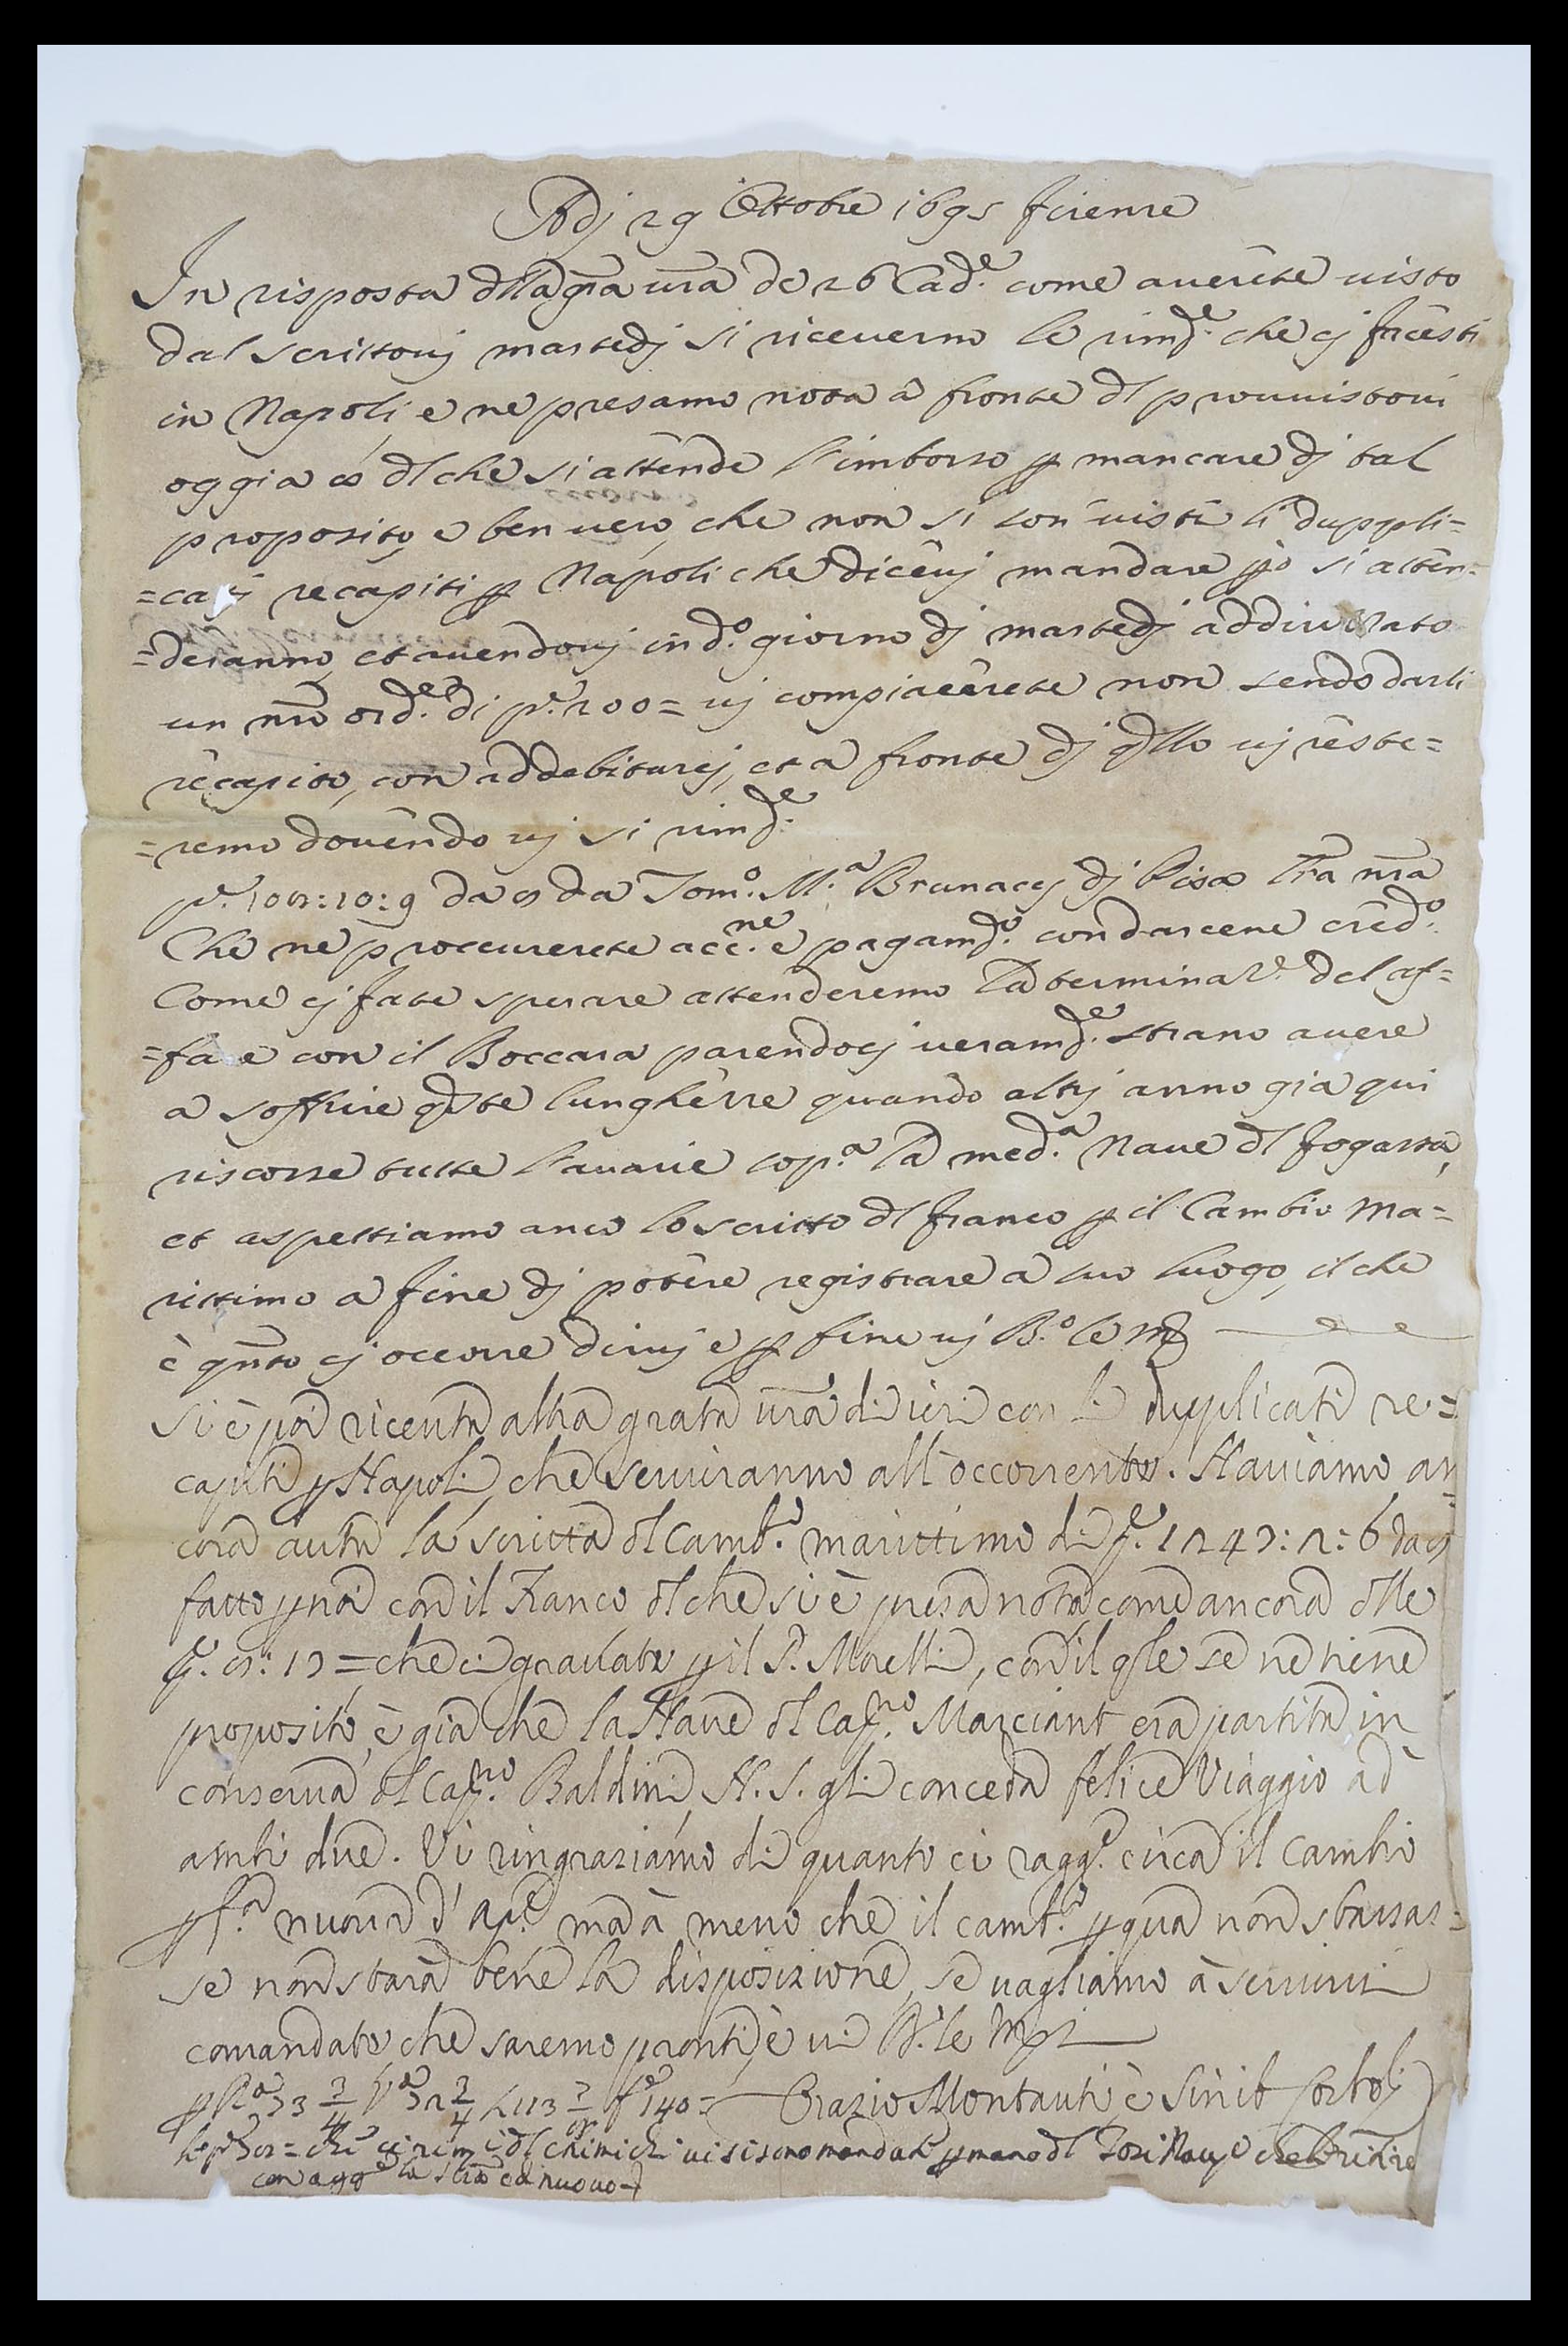 Adj 29 Ottobre 1695 firenze
In risposta dlla gra vra de 26 Cad.e come auerete uisto
dal scrittouj martedj si riceuerno le rimd.e che cj facesti
in Napoli e ne presamo nota a fronte dl prouuistoui
oggia dl che si attende l'imborso p mancare dj tal
proposito, e ben uero, che non si son uisti li duppli=
recapiti p Napoli che diceuj mandare pò si atten=
=deranno, et auendouj in d.o giorno dj martedj addirizzato
un nro ord.e di p.e 200= uj compiacerete non sendo darli
recapito, con addebitarcj, et a fronte dj qllo uj reste=
=remo douendo uj si rimd.e
da Tom.o M.a Brunaccj dj Pisa lra nra
Che ne proccurerete acc.ne e pagamd.o con darcene cred.o
Come cj fate sperare attenderemo la terminaz.e del af=
=fare con il Boccara parendocj ueramd.e strano auere
a soffrire qste lunghezze quando altrj anno gia qui
riscosse tutte l'auarie sop.a la med.a Naue dl fogassa,
et aspettiamo anco lo scritto dl franco p il Cambio Ma=
rittimo a fine dj potere registrare a suo luogo, il che
è qnto cj occorre diruj e p fine uj B.o le M
Si è poi riceuta altra grata vra di ieri con li duplicati re=
capiti p Napoli, che seruiranno all'occorrente. Hauiamo an
cora auta la scritta dl Camb.o marittimo di p.e 1247:2:6 da
fatto p noi con il Franco dl che si è presa nota come ancora dlle
che ci grauate p il S. Morelli, con il qle se ne tiene
proposito, è gia che la Naue dl Cap.no Marciant era partita in
conserua dl Cap.no Baldini, N.S. gli conceda felice Viaggio ad
ambi due. Vi ringraziamo di quanto ci ragg.e circa il Cambio
p f.a nuoua d'Ap.e ma à meno che il camb.o p qua non sbassas=
se non starà bene la disposizione, se uagliamo à seruirui
comandate, che saremo pronti, è ui B.o le M
Orazio Montauti, è Sinib
che ci rim dl chimichi ui si sono mandati p mano dl Tosi Nauic
con agg la di nuouo